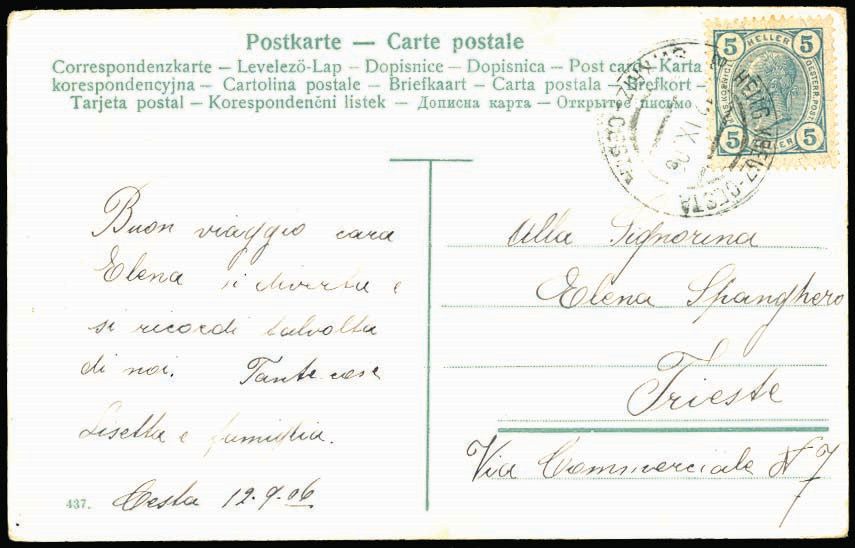 Postkarte — Carte postale
Correspondenzkarte – Levelező-Lap – Dopisnice – Dopisnica – Post card – Karta
korespondencyjna – Cartolina postale – Briefkaart – Carta postala – Brefkort –
Tarjeta postal – Korespondenčni listek – Дописна карта – Открытое письмо
5 HELLER 5
5 HELLER 5
HEILIG. KREUZ-CESTA
IX 06
Buon viaggio cara
Elena si diverta e
si ricordi talvolta
di noi. Tante cose
Lisetta e famiglia.
Cesta 12.9.06
Alla Signorina
Elena Spanghero
Trieste
Via Commerciale N 7
437.